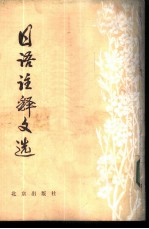 日语注释文选
北京出版社